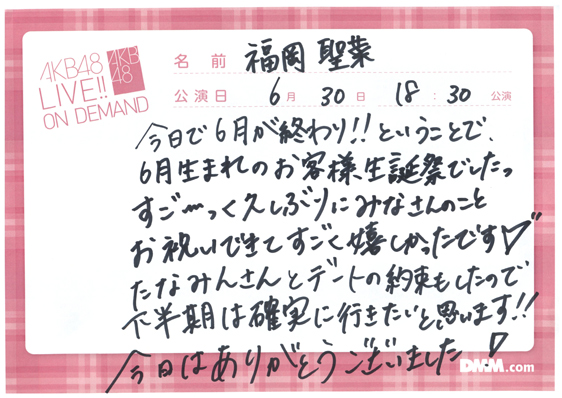 AKB48
LIVE!!
ON DEMAND
AKB
48
名前 福岡 聖菜
公演日 6月 30日 18:30 公演
今日で6月が終わり!!ということで、
6月生まれのお客様生誕祭でしたっ
すご〜っく久しぶりにみなさんのこと
お祝いできてすごく嬉しかったです♡
たなみんさんとデートの約束もしたので
下半期は確実に行きたいと思います!!
今日はありがとうございました♡
DMM.com